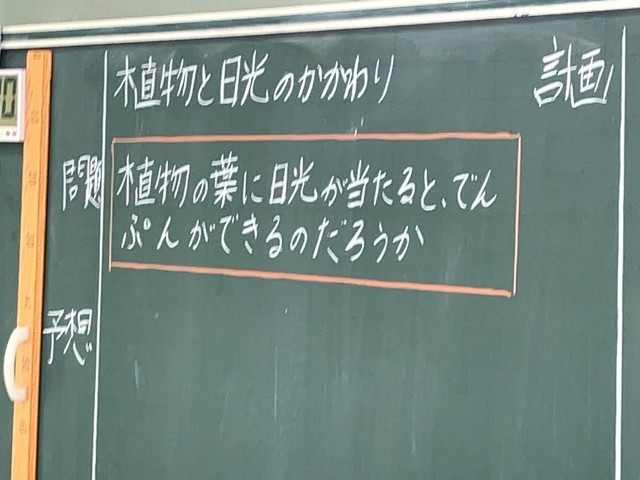 植物と日光のかかわり
計画
問題
植物の葉に日光が当たると、でん
ぷんができるのだろうか
予想